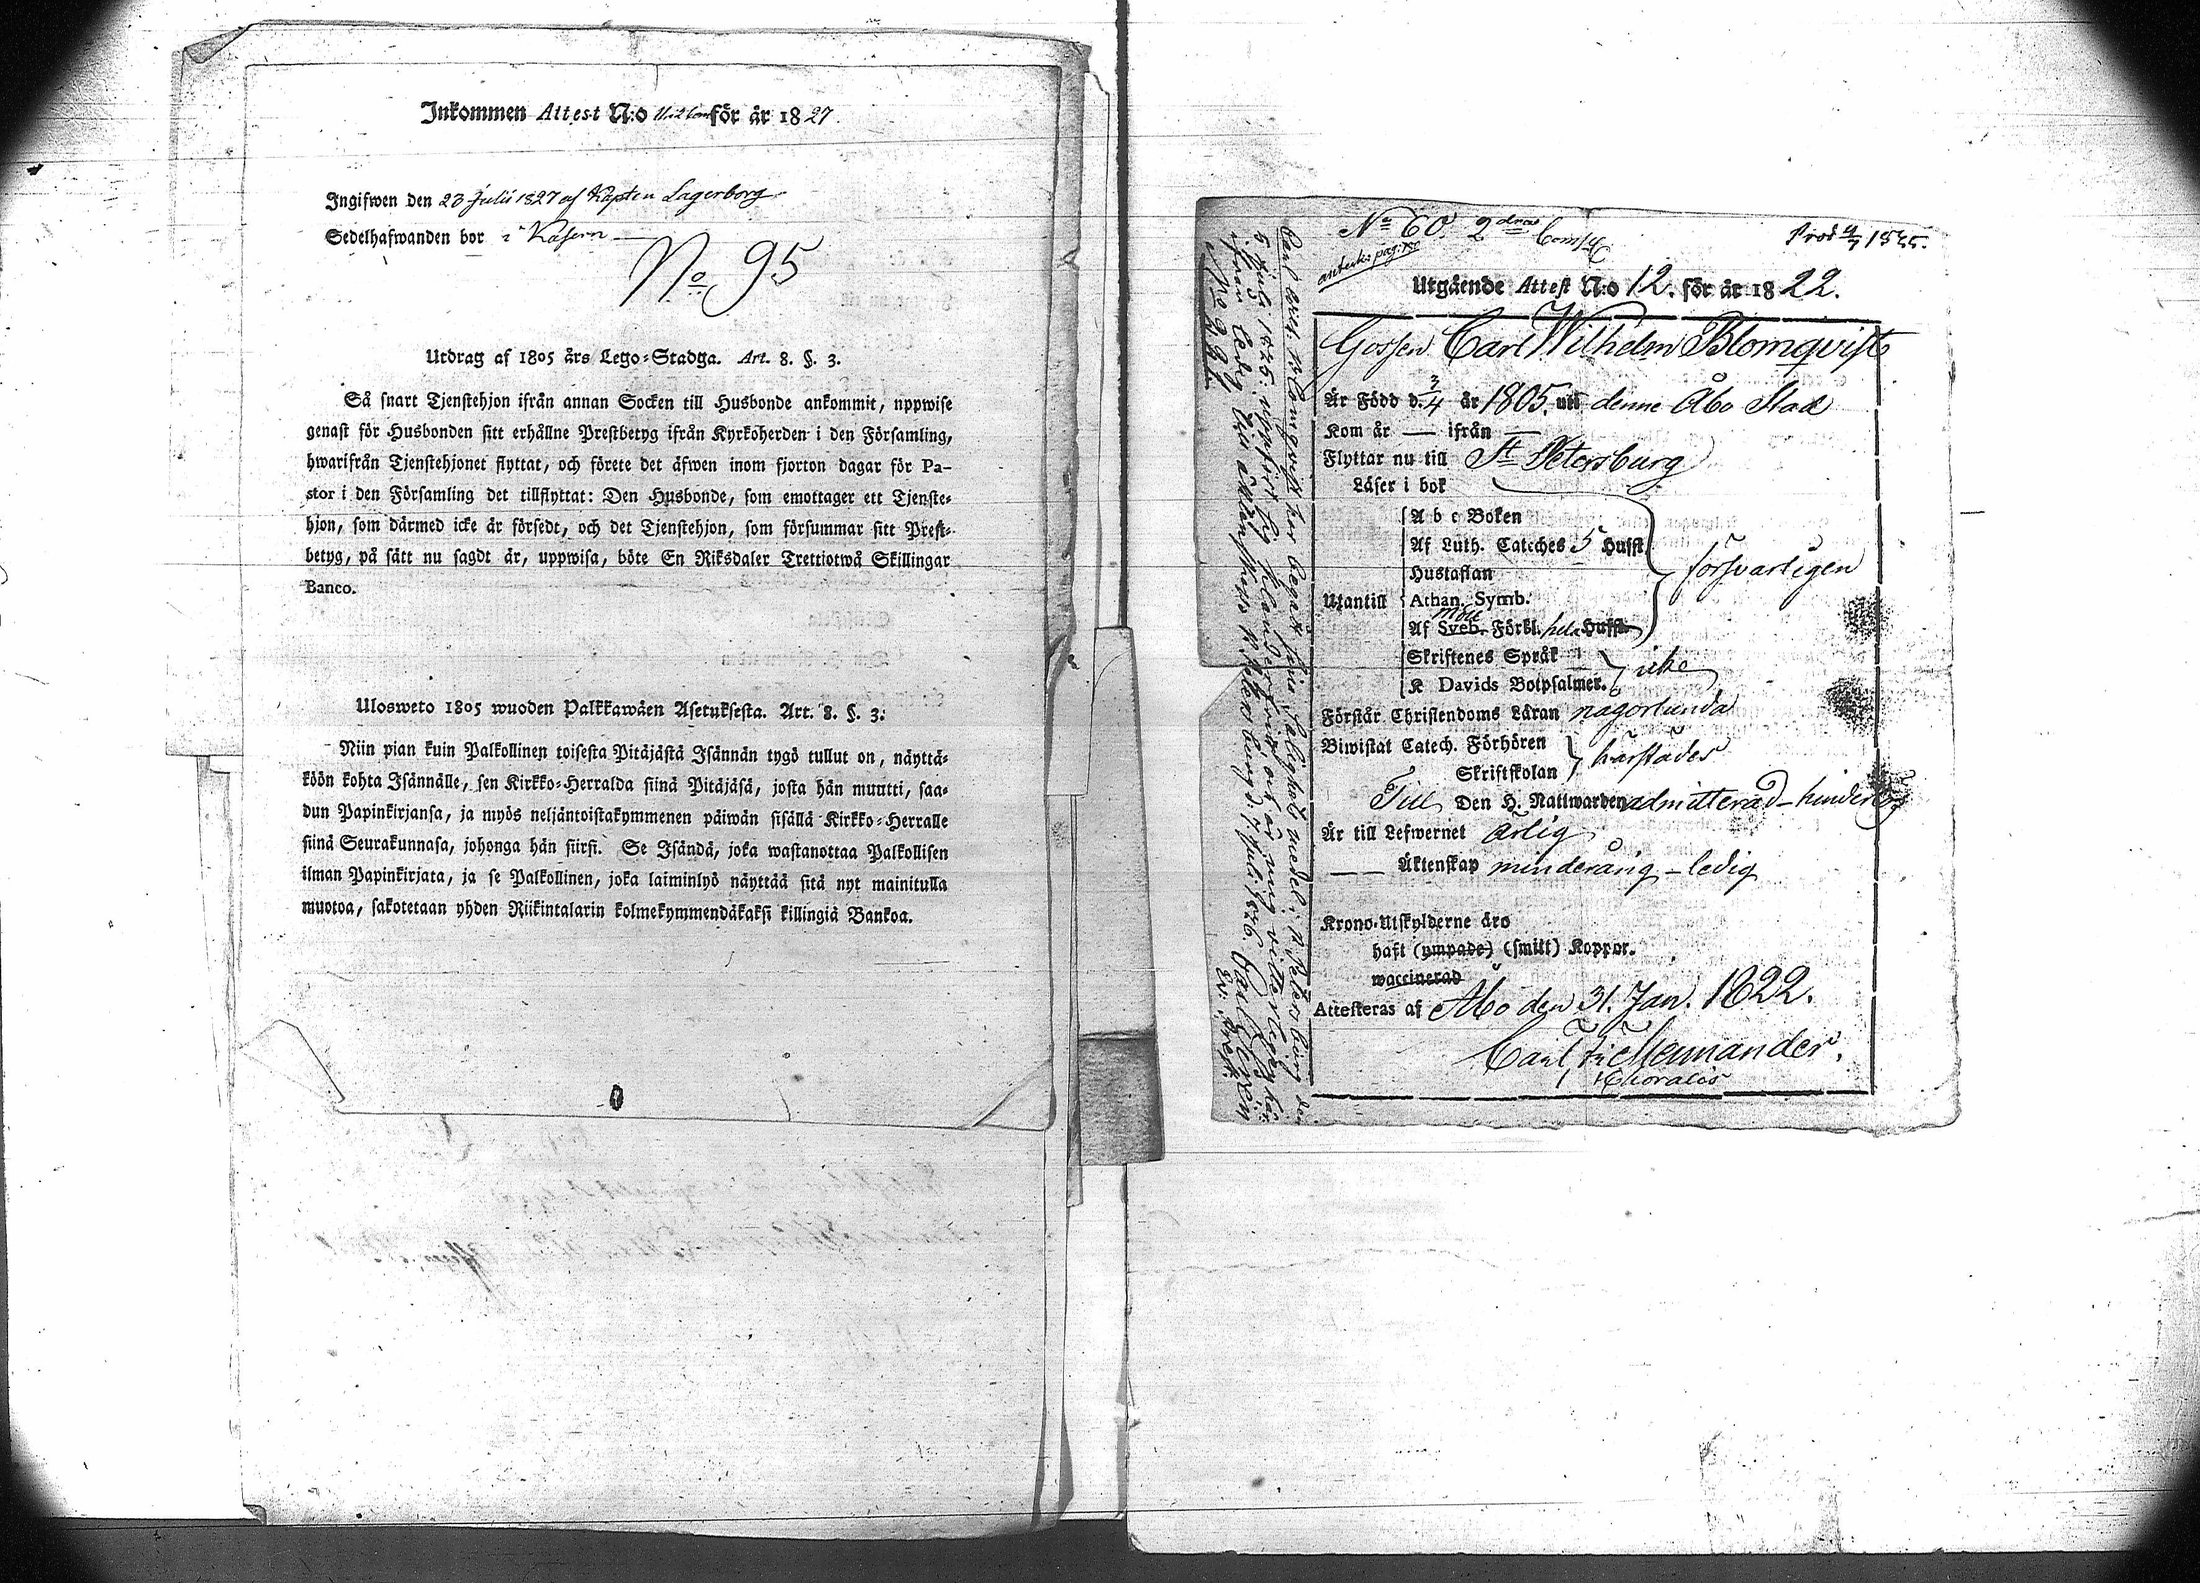 Inkommen Attest N:o för år 1827.
Ingifwen den 23 Julii 1827 af Kapten Lagerborg
Sedelhafwanden bor i Kasern
No 95
Utdrag af 1805 års Lego-Stadga. Art. 8. §. 3.
Så snart Tjenstehjon ifrån annan Socken till Husbonde ankommit, uppwise
genast för Husbonden sitt erhållne Prestbetyg ifrån Kyrkoherden i den Församling,
hwarifrån Tjenstehjonet flyttat, och förete det äfwen inom fjorton dagar för Pa-
stor i den Församling det tillflyttat: Den Husbonde, som emottager ett Tjenste-
hjon, som därmed icke är försedt, och det Tjenstehjon, som försummar sitt Prest-
betyg, på sätt nu sagdt är, uppwisa, böte En Riksdaler Trettiotwå Skillingar
Banco.
Ulosweto 1805 wuoden Palkkawäen Asetuksesta. Art. 8. §. 3.
Niin pian kuin Palkollinen toisesta Pitäjästä Isännän tygö tullut on, näyttä-
köön kohta Isännälle, sen Kirkko-Herralda siinä Pitäjäsä, josta hän muutti, saa-
dun Papinkirjansa, ja myös neljäntoistakymmenen päiwän sisällä Kirkko-Herralle
siinä Seurakunnasa, johonga hän siirsi. Se Isändä, joka wastanottaa Palkollisen
ilman Papinkirjata, ja se Palkollinen, joka laiminlyö näyttää sitä nyt mainitulla
muotoa, sakotetaan yhden Riikintalarin kolmekymmendäkaksi killingiä Bankoa.
No 60. 2dra
Prod 9/7 1825.
anteckn: pag:
Utgående Attest N:o 12. för år 1822.
Gossen Carl Wilhelm Blomqvist
Är Född d. 3/4 år 1805. uti denne Åbo Stad
Kom år — ifrån —
Flyttar nu till St Petersburg
Läser i bok
A b c Boken
Af Luth. Cateches 5 Hufst
Hustaflan
försvarligen
Utantill Athan. Symb.
Af Sveb. Förkl. hela Hufst
Skriftenes Språk
icke
K Davids Botpsalmer.
Förstår Christendoms Läran någorlunda
Biwistat Catech. Förhören
härstädes
Skriftskolan
Till Den H. Nattwarden admitterad – hinderlig
Är till Lefwernet ärlig
—— Äktenskap minderårig – ledig
Krono-Utskylderne äro
haft (ympade) (smitt) Koppor.
waccinerad
Attesteras af Åbo den 31. Jan. 1822.
Carl Fr: Memander.
Carl Wilh. Blomqvist har begått sin salighets medel i St Petersburg den
5 Juli 1825. uppfört sig och är mig
ledig till äktenskap. St Petersburg d. 7 Juli 1826.
No 991.